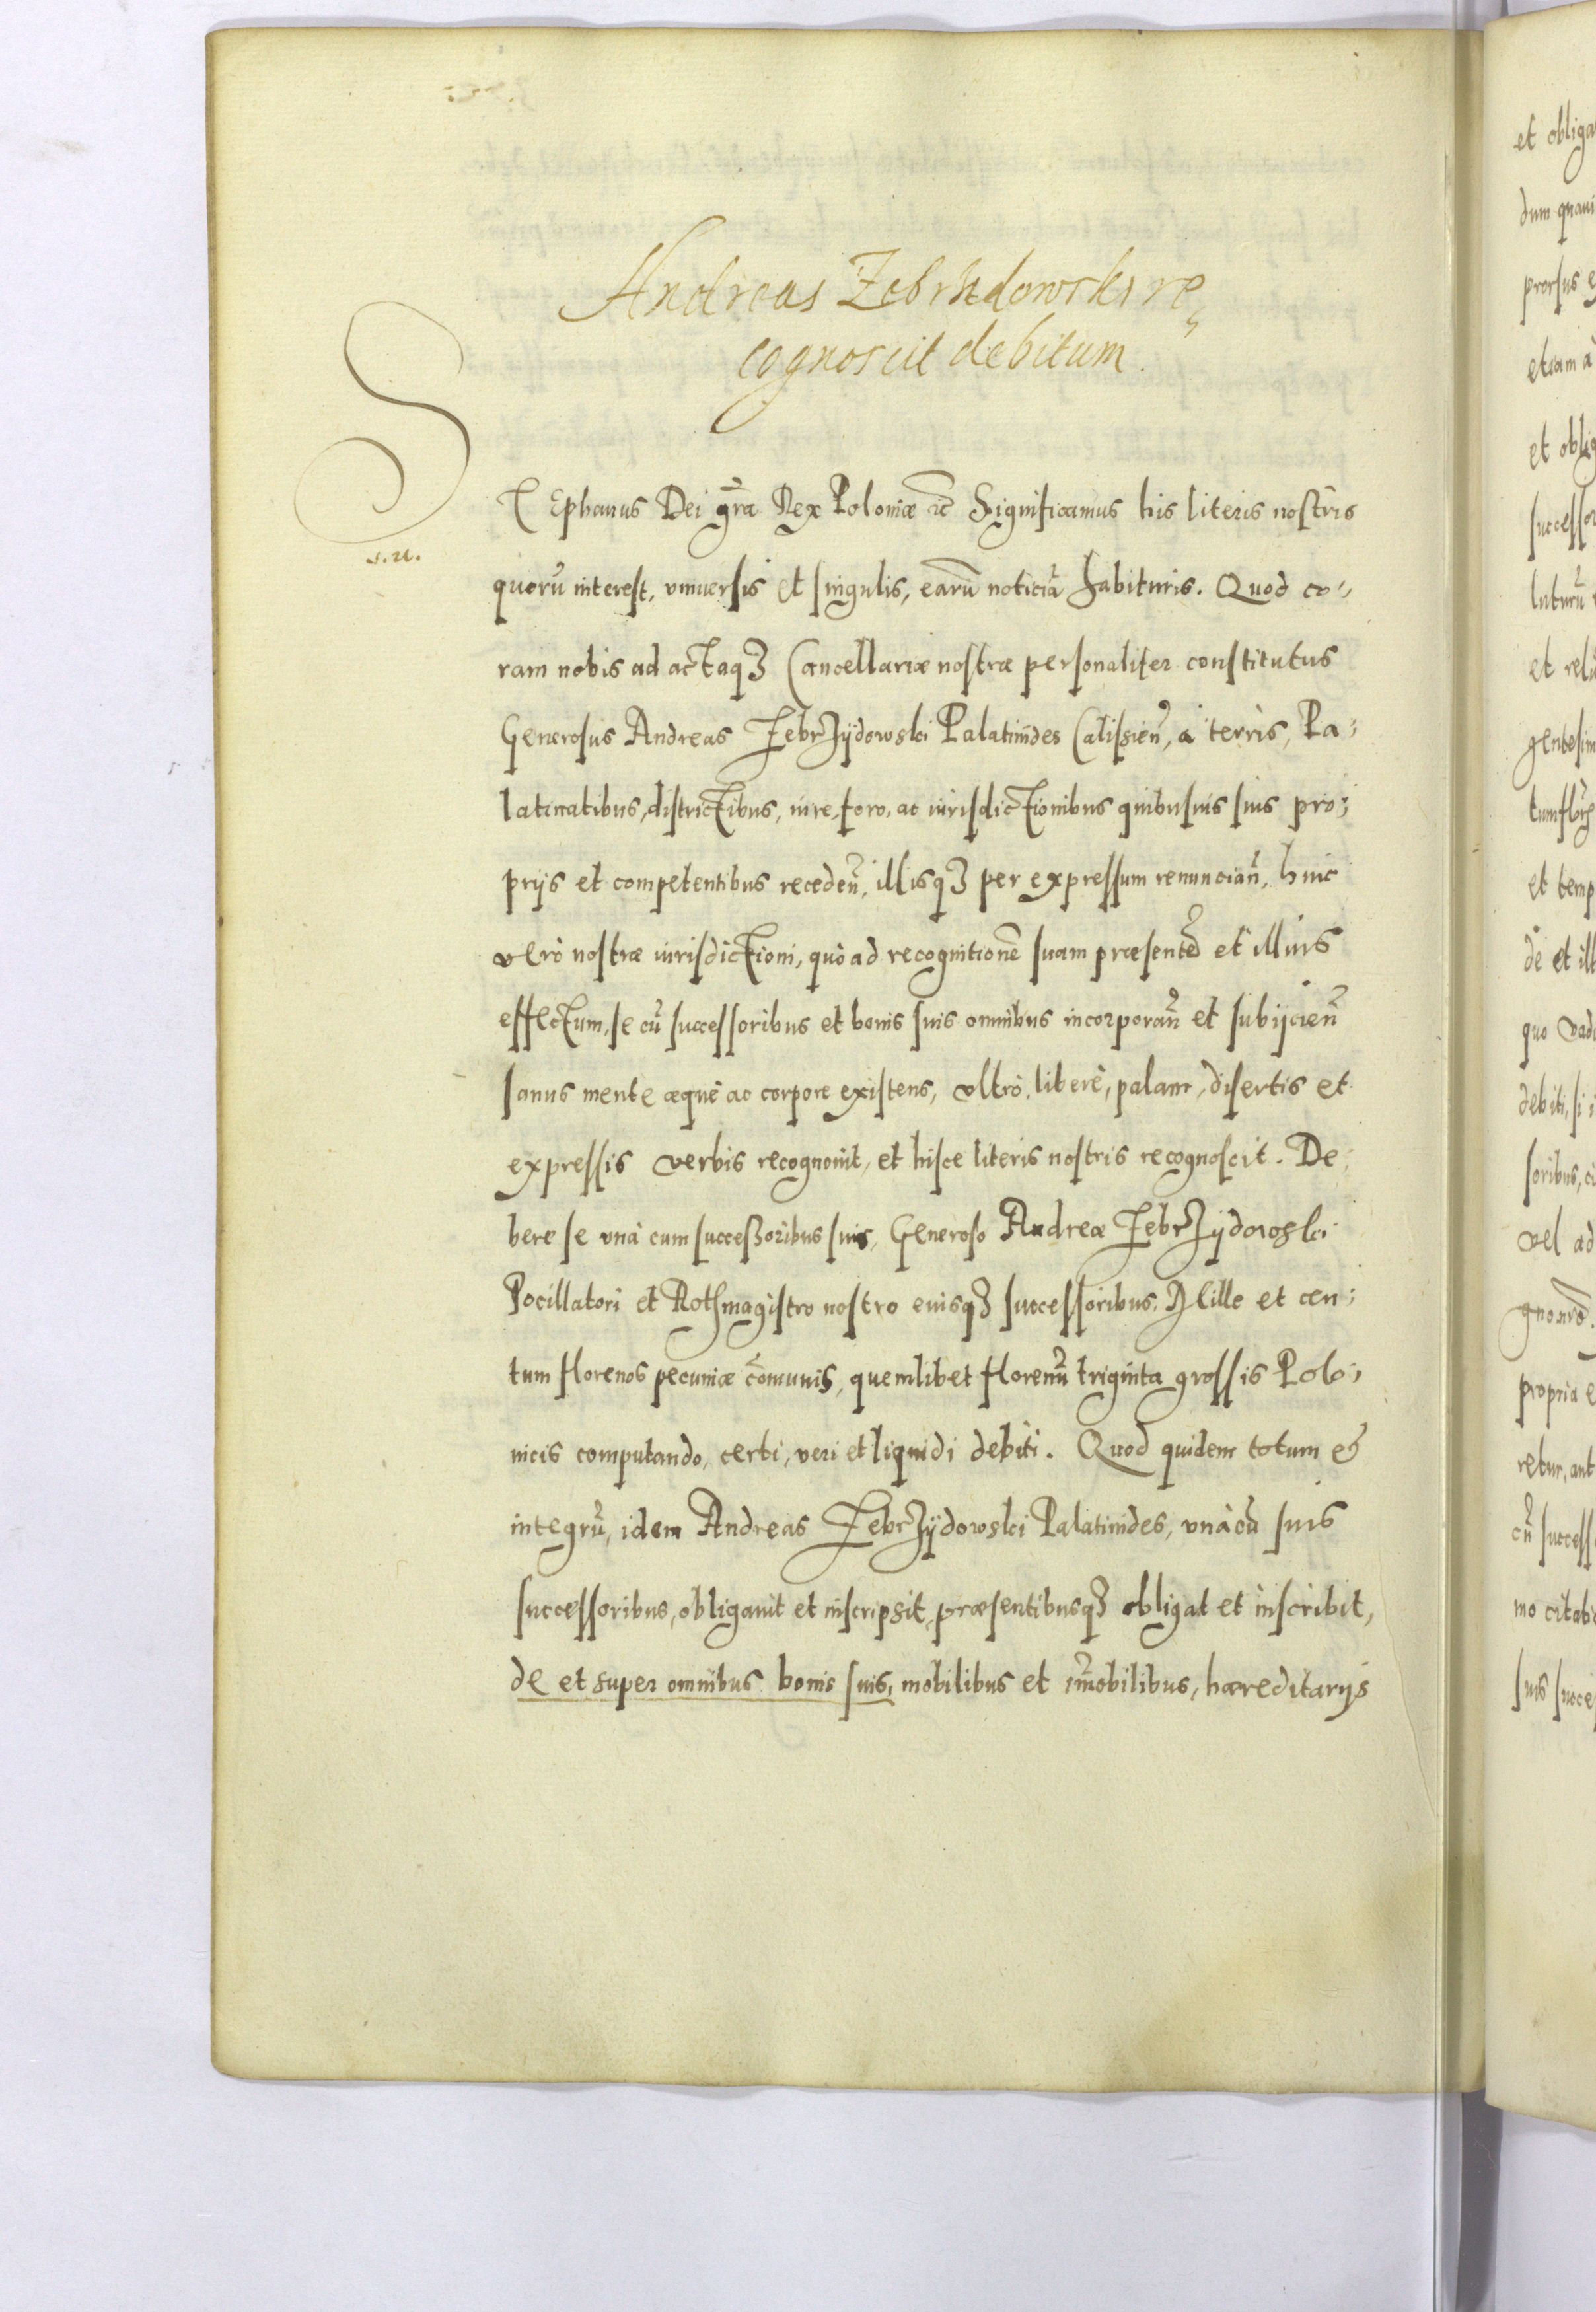 Andreas Zebrzidowski re„
cognoscit debitum.
STEphanus Dei gra͂ Rex Poloniæ etc͂ Significamus his literis nostris
quorũ interest, vniuersis et singulis, earũ noticiã habituris. Quod co„
ram nobis ad actaqꝫ Cancellariæ nostræ personaliter constitutus
Generosus Andreas Zebrzÿdowski Palatinides Calissień, à terris, Pa„
latinatibus, districtibus, iure, foro, ac iurisdictionibus quibusuis suis pro„
prijs et competentibus recedeñ, illisqꝫ per expressum renunciañ, huic
verò nostræ iurisdictioni, quò ad recognitionẽ suam præsentẽ et illius
effectum, se cũ successoribus et bonis suis omnibus incorporañ et subijcieñ
sanus mente æquè ac corpore existens, vltrò, liberè, palam, disertis et
expressis verbis recognouit, et hisce literis nostris recognoscit. De„
bere se vnà cum successoribus suis, Generoso Andreæ Zebrzÿdowski
Pocillatori et Rothmagistro nostro eiusqꝫ successoribus, Mille et cen„
tum florenos pecuniæ cõmunis, quemlibet florenũ triginta grossis Polo„
nicis computando, certi, veri et liquidi debiti. Quod quidem totum et
integrũ, idem Andreas Zebrzÿdowski Palatinides, vnà cũ suis
successoribus, obligauit et inscripsit, præsentibusqꝫ obligat et inscribit,
de et super omnibus bonis suis, mobilibus et im̃obilibus, hæreditarijs
et obliga
dum
prorsus
etiam
et oblig
successor
luturũ
et
tum
et temp
de et ill
quo vad
debiti, si
soribus,
vel ad
propria e
retur, aut
cũ success
mo citati
suis